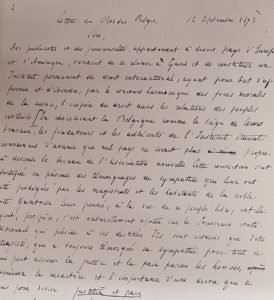 Lettre au Roi des Belges, 12 Septembre 1873
Sire,
Des publicistes et des jurisconsultes, appartenant à divers pays d'Europe
et d'Amérique, viennent de se réunir à Gand et de constituer un
Institut permanent de droit international, ayant pour but d'af-
fermir et d'étendre, par le concours harmonique des forces morales
de la science, l'empire du droit dans les relations des peuples
civilisés. En choisissant la Belgique comme le siège de leurs
travaux, les fondateurs et les adhérents de l'Institut étaient
convaincus d'avance que nul pays ne serait plus propre
à devenir le berceau de l'Association nouvelle. Cette conviction s'est
fortifiée en présence des témoignages de sympathie que leur ont
été prodigués par les magistrats et les habitants de la noble
cité Gantoise. Leur pensée, à la vue de ce peuple libre, intelli-
gent, prospère, s'est naturellement reportée sur le Souverain consti-
tutionnel qui préside à ses destinées. Ils sont certains que Votre
Majesté, qui a toujours témoigné sa sympathie pour tout ce
qui peut assurer la justice et la paix parmi les hommes,
le caractère et l'importance d'une œuvre qui a
pour devise: justitia et pace